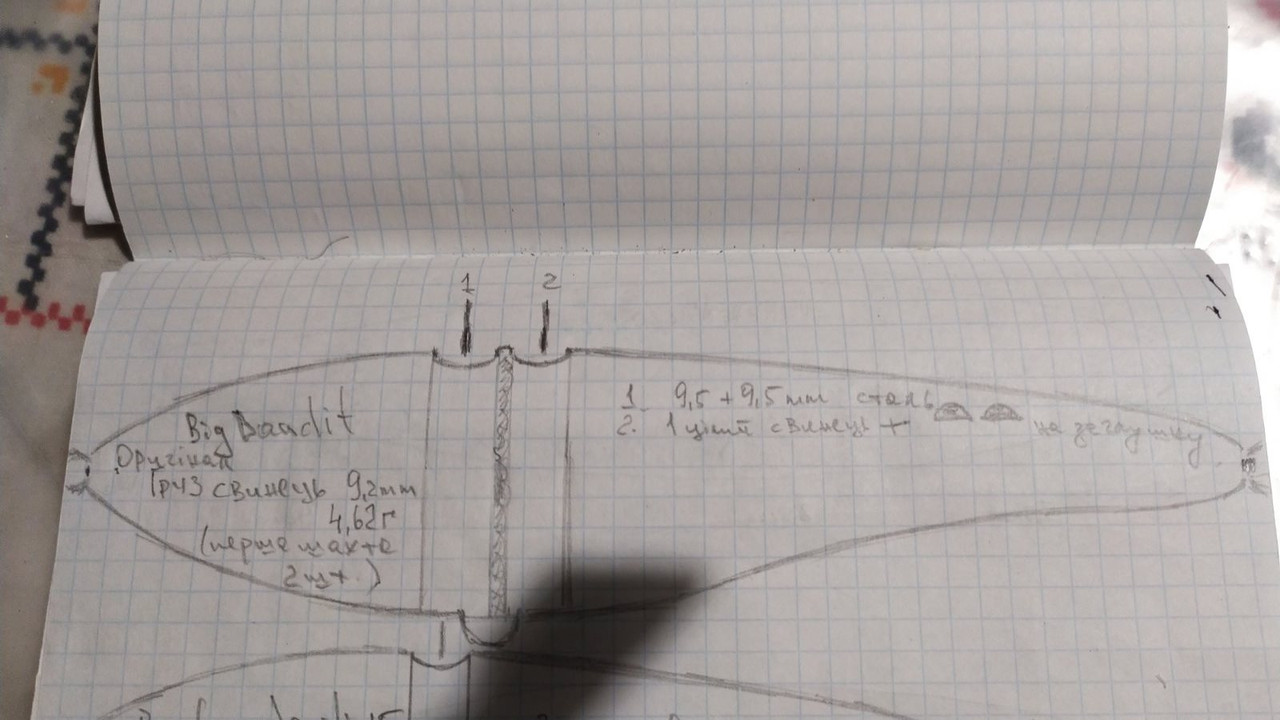 1 2
Big Bandit
Оригінал
Груз свинець 9,2mm
4,62г
(перша шахта
2шт.)
1. 9,5 + 9,5mm сталь
2. 1 цілий свинець + на заглушку
1